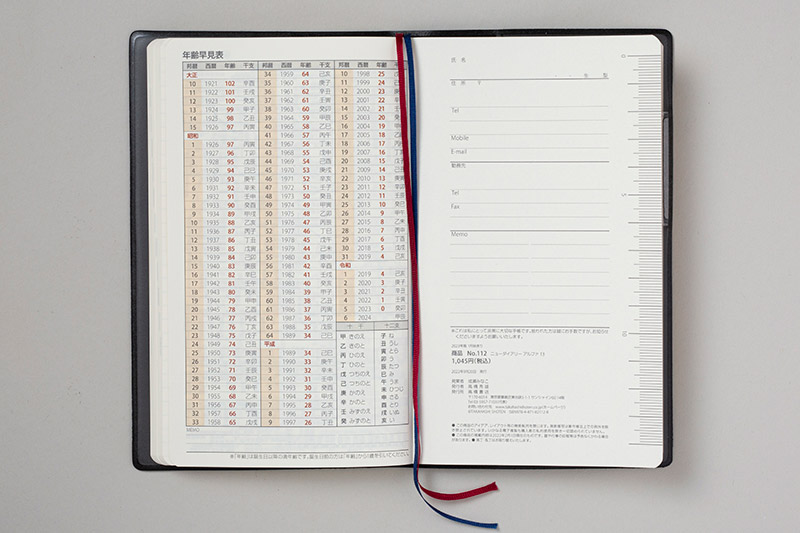 年齢早見表
邦暦 西暦 年齢 干支
大正
10 1921 102 辛酉
11 1922 101 壬戌
12 1923 100 癸亥
13 1924 99 甲子
14 1925 98 乙丑
15 1926 97 丙寅
昭和
1 1926 97 丙寅
2 1927 96 丁卯
3 1928 95 戊辰
4 1929 94 己巳
5 1930 93 庚午
6 1931 92 辛未
7 1932 91 壬申
8 1933 90 癸酉
9 1934 89 甲戌
10 1935 88 乙亥
11 1936 87 丙子
12 1937 86 丁丑
13 1938 85 戊寅
14 1939 84 己卯
15 1940 83 庚辰
16 1941 82 辛巳
17 1942 81 壬午
18 1943 80 癸未
19 1944 79 甲申
20 1945 78 乙酉
21 1946 77 丙戌
22 1947 76 丁亥
23 1948 75 戊子
24 1949 74 己丑
25 1950 73 庚寅
26 1951 72 辛卯
27 1952 71 壬辰
28 1953 70 癸巳
29 1954 69 甲午
30 1955 68 乙未
31 1956 67 丙申
32 1957 66 丁酉
33 1958 65 戊戌
邦暦 西暦 年齢 干支
34 1959 64 己亥
35 1960 63 庚子
36 1961 62 辛丑
37 1962 61 壬寅
38 1963 60 癸卯
39 1964 59 甲辰
40 1965 58 乙巳
41 1966 57 丙午
42 1967 56 丁未
43 1968 55 戊申
44 1969 54 己酉
45 1970 53 庚戌
46 1971 52 辛亥
47 1972 51 壬子
48 1973 50 癸丑
49 1974 49 甲寅
50 1975 48 乙卯
51 1976 47 丙辰
52 1977 46 丁巳
53 1978 45 戊午
54 1979 44 己未
55 1980 43 庚申
56 1981 42 辛酉
57 1982 41 壬戌
58 1983 40 癸亥
59 1984 39 甲子
60 1985 38 乙丑
61 1986 37 丙寅
62 1987 36 丁卯
63 1988 35 戊辰
64 1989 34 己巳
平成
1 1989 34 己巳
2 1990 33 庚午
3 1991 32 辛未
4 1992 31 壬申
5 1993 30 癸酉
6 1994 29 甲戌
7 1995 28 乙亥
8 1996 27 丙子
9 1997 26 丁丑
邦暦 西暦 年齢
10 1998 25
11 1999 24
12 2000 23
13 2001 22
14 2002 21
15 2003 20
16 2004 19
17 2005 18
18 2006 17
19 2007 16
20 2008 15
21 2009 14
22 2010 13
23 2011 12
24 2012 11
25 2013 10
26 2014 9 甲午
27 2015 8 乙未
28 2016 7 丙申
29 2017 6 丁酉
30 2018 5 戊戌
31 2019 4 己亥
令和
1 2019 4 己亥
2 2020 3 庚子
3 2021 2 辛丑
4 2022 1 壬寅
5 2023 0 癸卯
6 2024 甲辰
十干 十二支
甲 きのえ
乙 きのと
丙 ひのえ
丁 ひのと
戊 つちのえ
己 つちのと
庚 かのえ
辛 かのと
壬 みずのえ
癸 みずのと
子 ね
丑 うし
寅 とら
卯 う
辰 たつ
巳 み
午 うま
未 ひつじ
申 さる
酉 とり
戌 いぬ
亥 い
MEMO
氏 名
年 型
住 所 〒
Tel
Mobile
E-mail
勤務先
Tel
Fax
Memo
0
5
10
商品 No.112 ニューダイアリー アルファ 11
1,045円(税込)